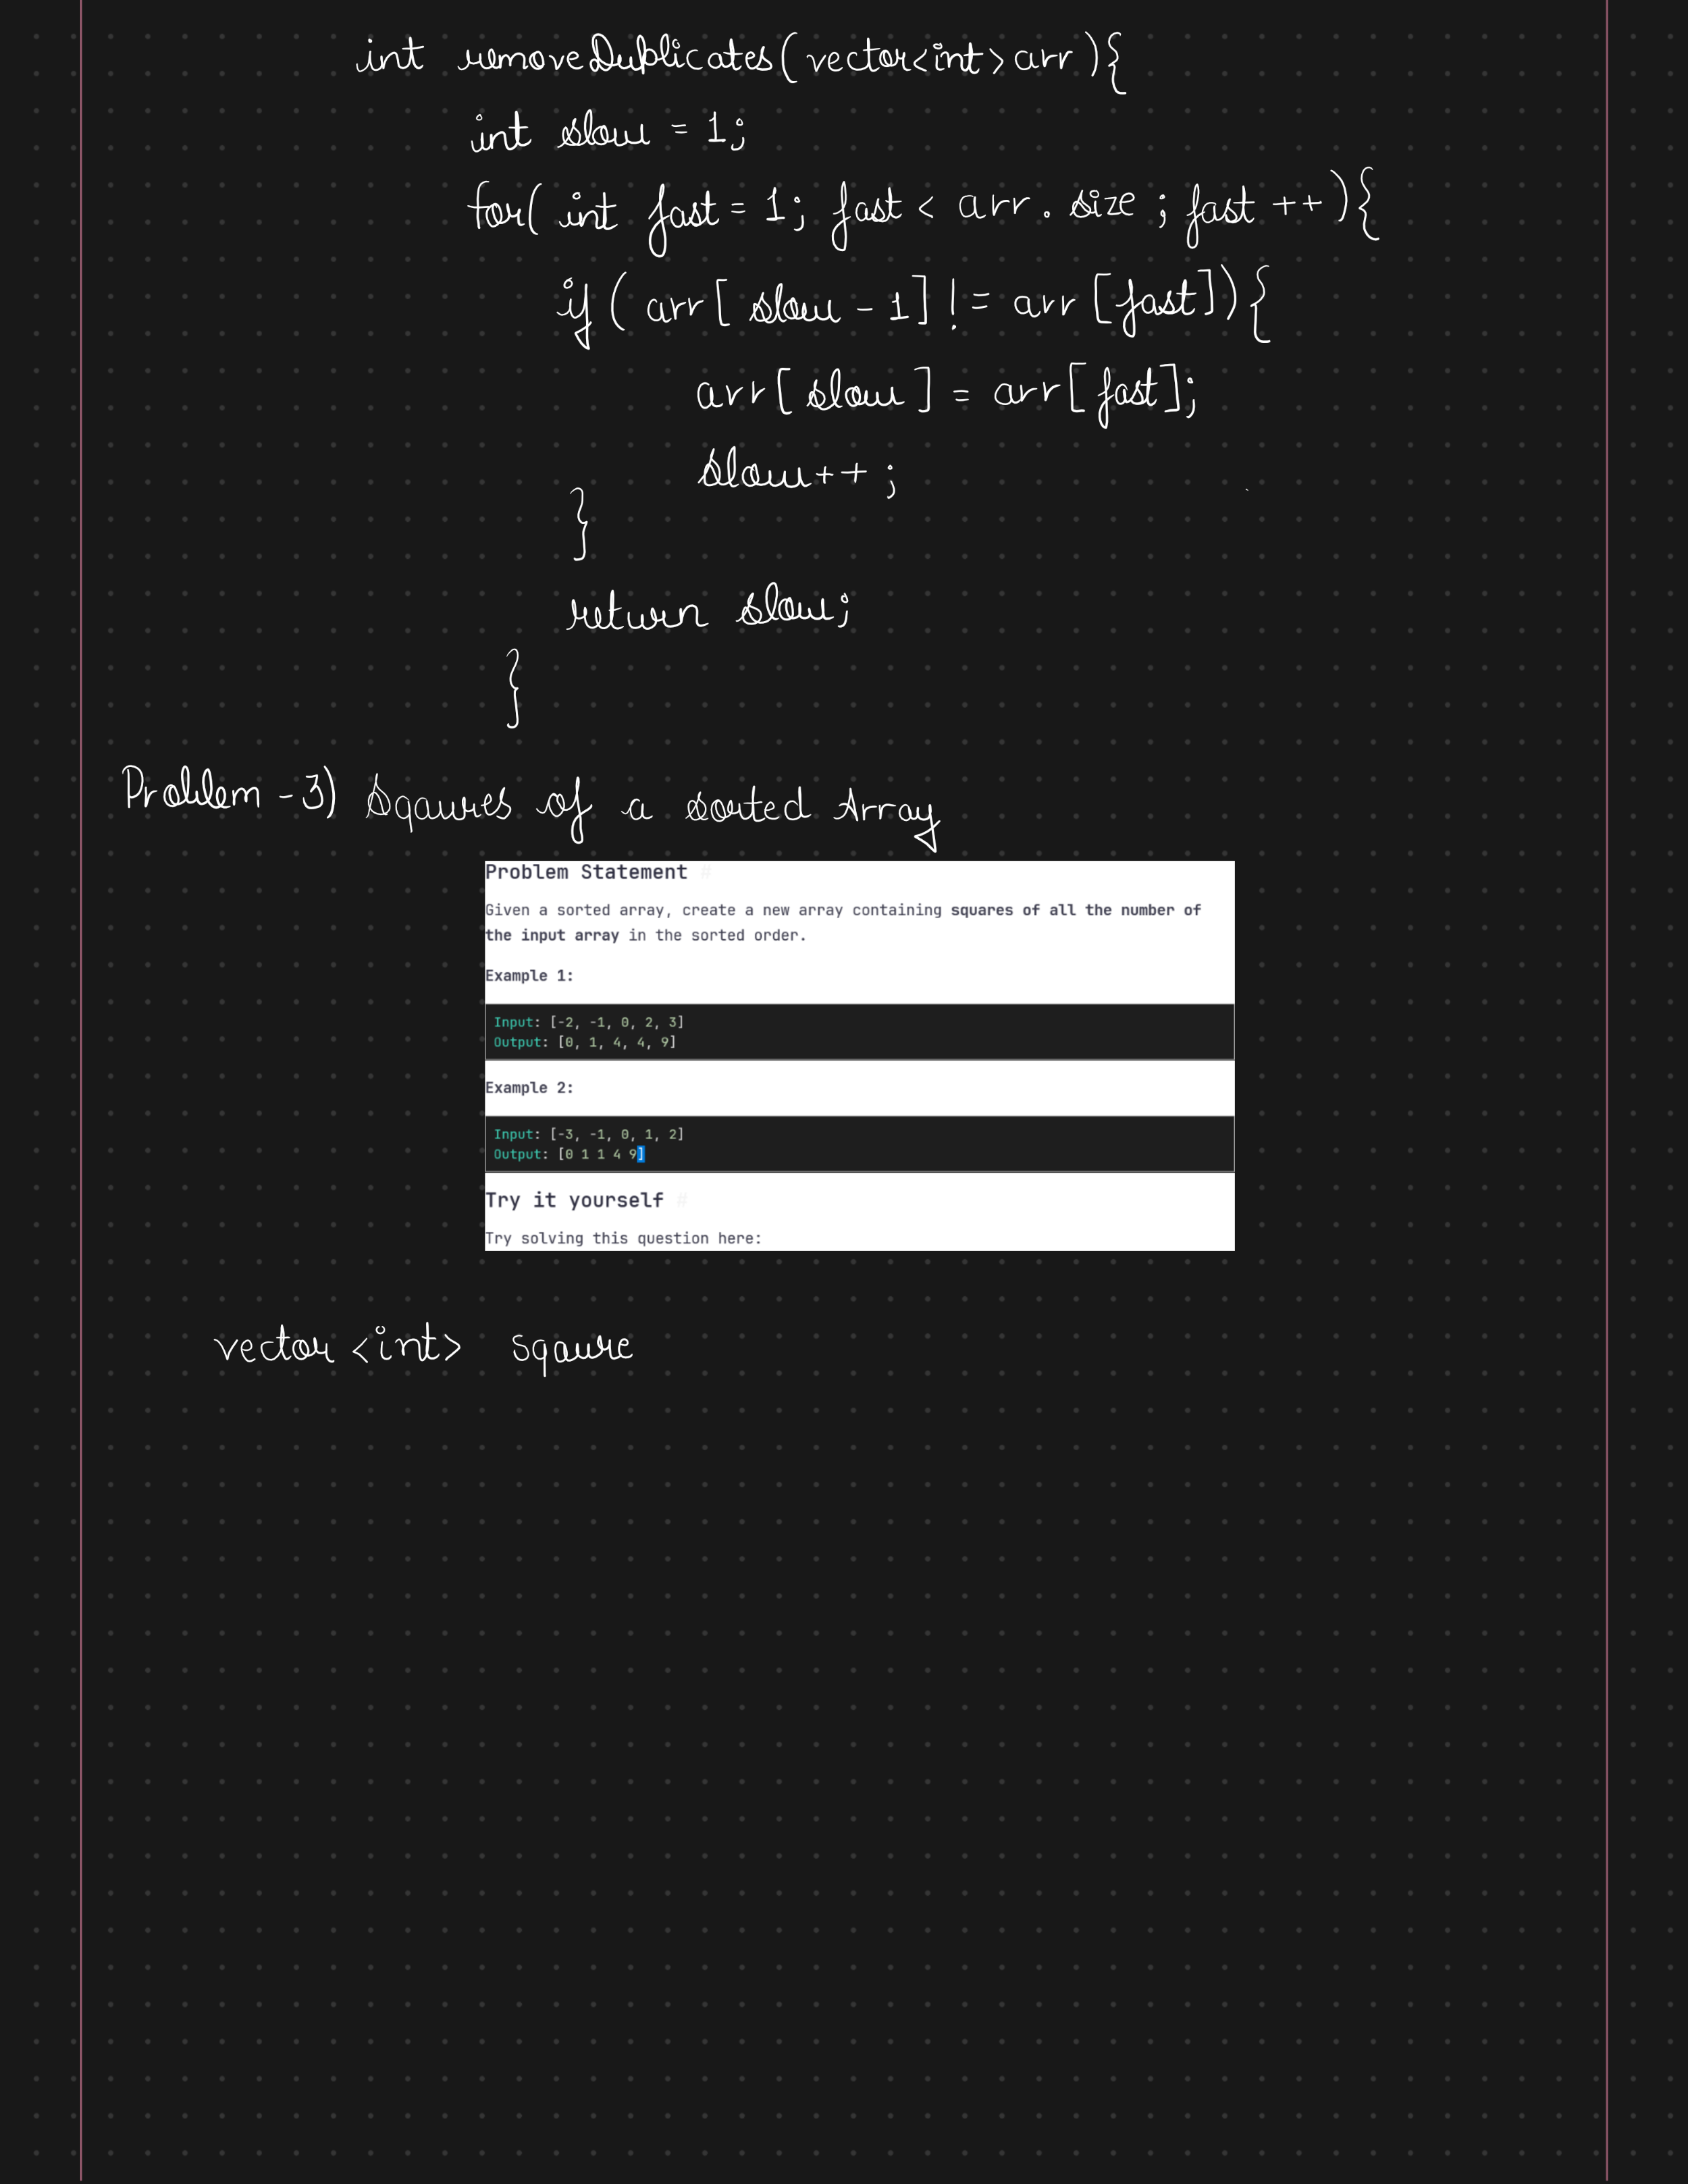 int removeDublicates(vector<int>arr){
int slow = 1;
for( int fast = 1; fast < arr. size ; fast ++){
if ( arr[ slow - 1] != arr [fast]){
arr[ slow ] = arr[fast];
slow++ ;
}
return slow;
}
Problem -3) Sqaures of a sorted Array
Problem Statement #
Given a sorted array, create a new array containing squares of all the number of
the input array in the sorted order.
Example 1:
Input: [-2, -1, 0, 2, 3]
Output: [0, 1, 4, 4, 9]
Example 2:
Input: [-3, -1, 0, 1, 2]
Output: [0 1 1 4 9]
Try it yourself #
Try solving this question here:
vector <int> sqaure